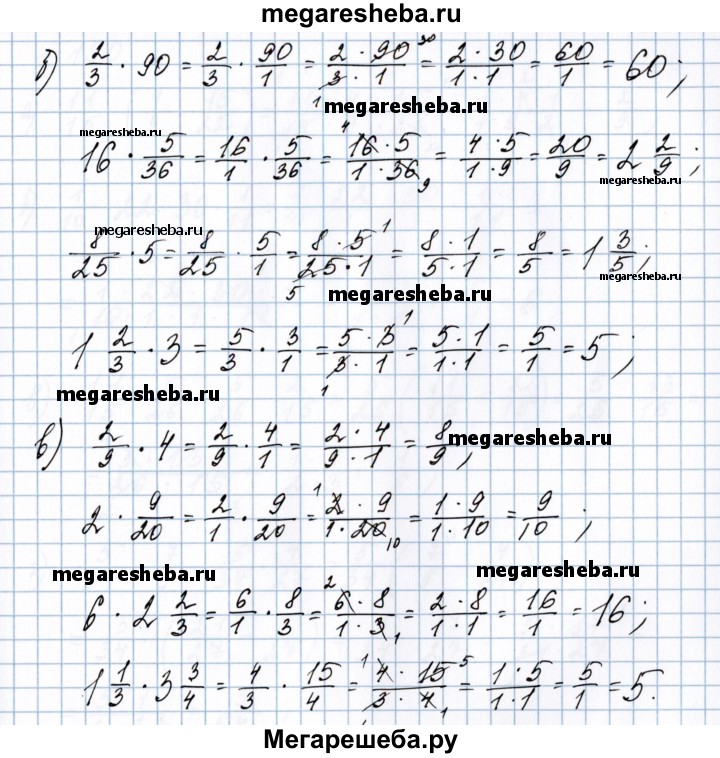 megaresheba.ru
б) 2/3 · 90 = 2/3 · 90/1 = 2 · 90 30/3 · 1 1 = 2 · 30/1 · 1 = 60/1 = 60;
megaresheba.ru
megaresheba.ru
16 · 5/36 = 16/1 · 5/36 = 4 16 · 5/1 · 36 9 = 4 · 5/1 · 9 = 20/9 = 2 2/9;
megaresheba.ru
megaresheba.ru
8/25 · 5 = 8/25 · 5/1 = 8 · 5 1/25 · 1 5 = 8 · 1/5 · 1 = 8/5 = 1 3/5;
megaresheba.ru
megaresheba.ru
1 2/3 · 3 = 5/3 · 3/1 = 5 · 3 1/3 · 1 1 = 5 · 1/1 · 1 = 5/1 = 5;
megaresheba.ru
в) 2/9 · 4 = 2/9 · 4/1 = 2 · 4/9 · 1 = 8/9;
megaresheba.ru
2 · 9/20 = 2/1 · 9/20 = 1 2 · 9/1 · 20 10 = 1 · 9/1 · 10 = 9/10;
megaresheba.ru
megaresheba.ru
6 · 2 2/3 = 6/1 · 8/3 = 2 6 · 8/1 · 3 1 = 2 · 8/1 · 1 = 16/1 = 16;
1 1/3 · 3 3/4 = 4/3 · 15/4 = 1 4 · 15 5/1 3 · 4 1 = 1 · 5/1 · 1 = 5/1 = 5.
Мегарешеба.ру